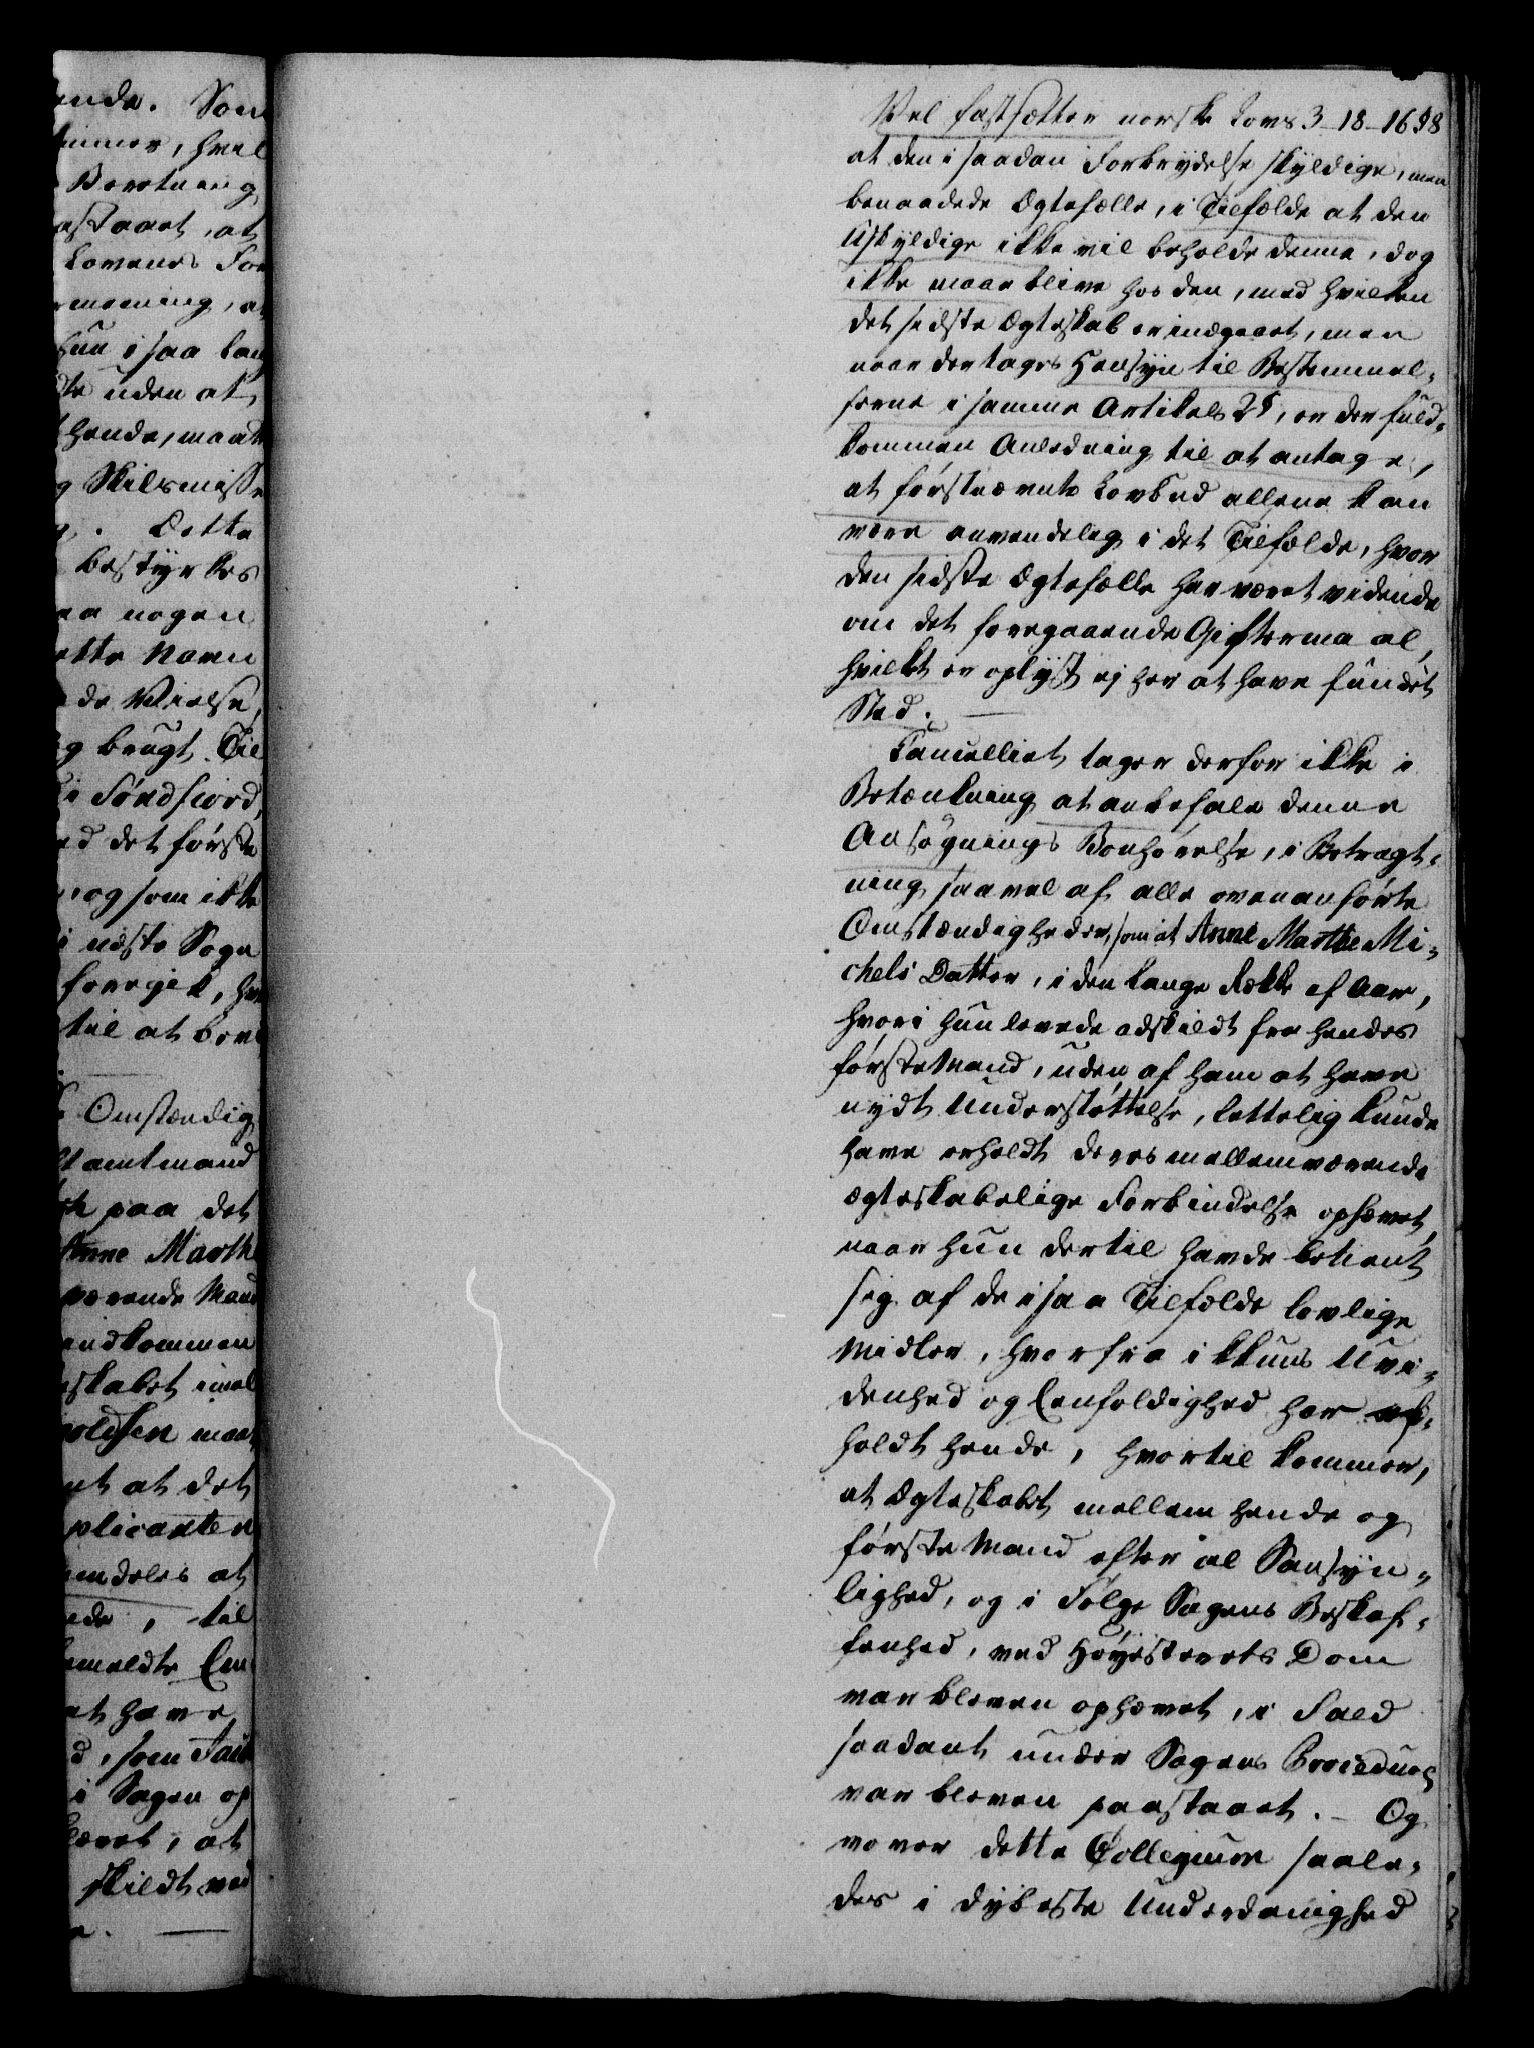 ende. Som
immer, hvil
Beretning
astaaet, at
Lovens For
rmening, at
hun i saa lang
dte uden at
hende, maatte
g Skilsmisse
n. Dette
bestyrkes
aa nogen
ette Navn
de Vielse,
g brugt. Til
i Søndfiord,
ed det første
, og som ikke
i næste Sogn
foregik, hvor
til at bevi
Omstændig
tamtmand
paa det
Anne Marthe
værende Mand
indkommen
skabet imel
oldsen maat
nt at det
plicanten
mdeles at
ede, til
emeldte Em
at have
d, som
i Sagen op
læret, at
skildt ved
Vel fastsætter norske Lovs 3-18-16 § 8
at den i saadan Forbrydelse skyldige, men
benaadede Ægtefælle, i Tilfælde at den
Uskyldige ikke vil beholde denne, dog
ikke maae blive hos den, med hvilken
det sidste Ægteskab er indgaaet, men
naar der tages Hensyn til Bestemmel-
serne i samme Artikels 2 §, er der fuld-
kommen Anledning til at antage,
at førstnævnte Lovbud allene kan
være anvendelig i det Tilfælde, hvor
den sidste Ægtefælle har været vidende
om det foregaaende Giftermaal,
hvilket er oplyst ej her at have fundet
Sted.
Cancelliet tager derfor ikke i
Betænkning at anbefale denne
Ansøgnings Bønhørelse, i Betragt-
ning saavel af alle ovenanførte
Omstændigheder, som at Anne Marthe Mi-
chels Datter, i den lange Række af Aar,
hvori hun levede adskildt fra hendes
første Mand, uden af ham at have
nydt Understøttelse, lettelig kunde
have erholdt deres mellemværende
ægteskabelige Forbindelse ophævet,
naar hun dertil havde betient
sig af de i saa Tilfælde lovlige
Midler, hvorfra ikkuns Uvi-
denhed og Eenfoldighed har af-
holdt hende, hvortil kommer,
at Ægteskabet mellem hende og
første Mand efter al Sandsyn-
lighed, og i Følge Sagens Beskaf-
fenhed, ved Høyesterets Dom
var bleven ophævet, i Fald
saadant under Sagens Procedure
var bleven paastaaet. - Og
vover dette Collegium saale-
des i dybeste Underdanighed